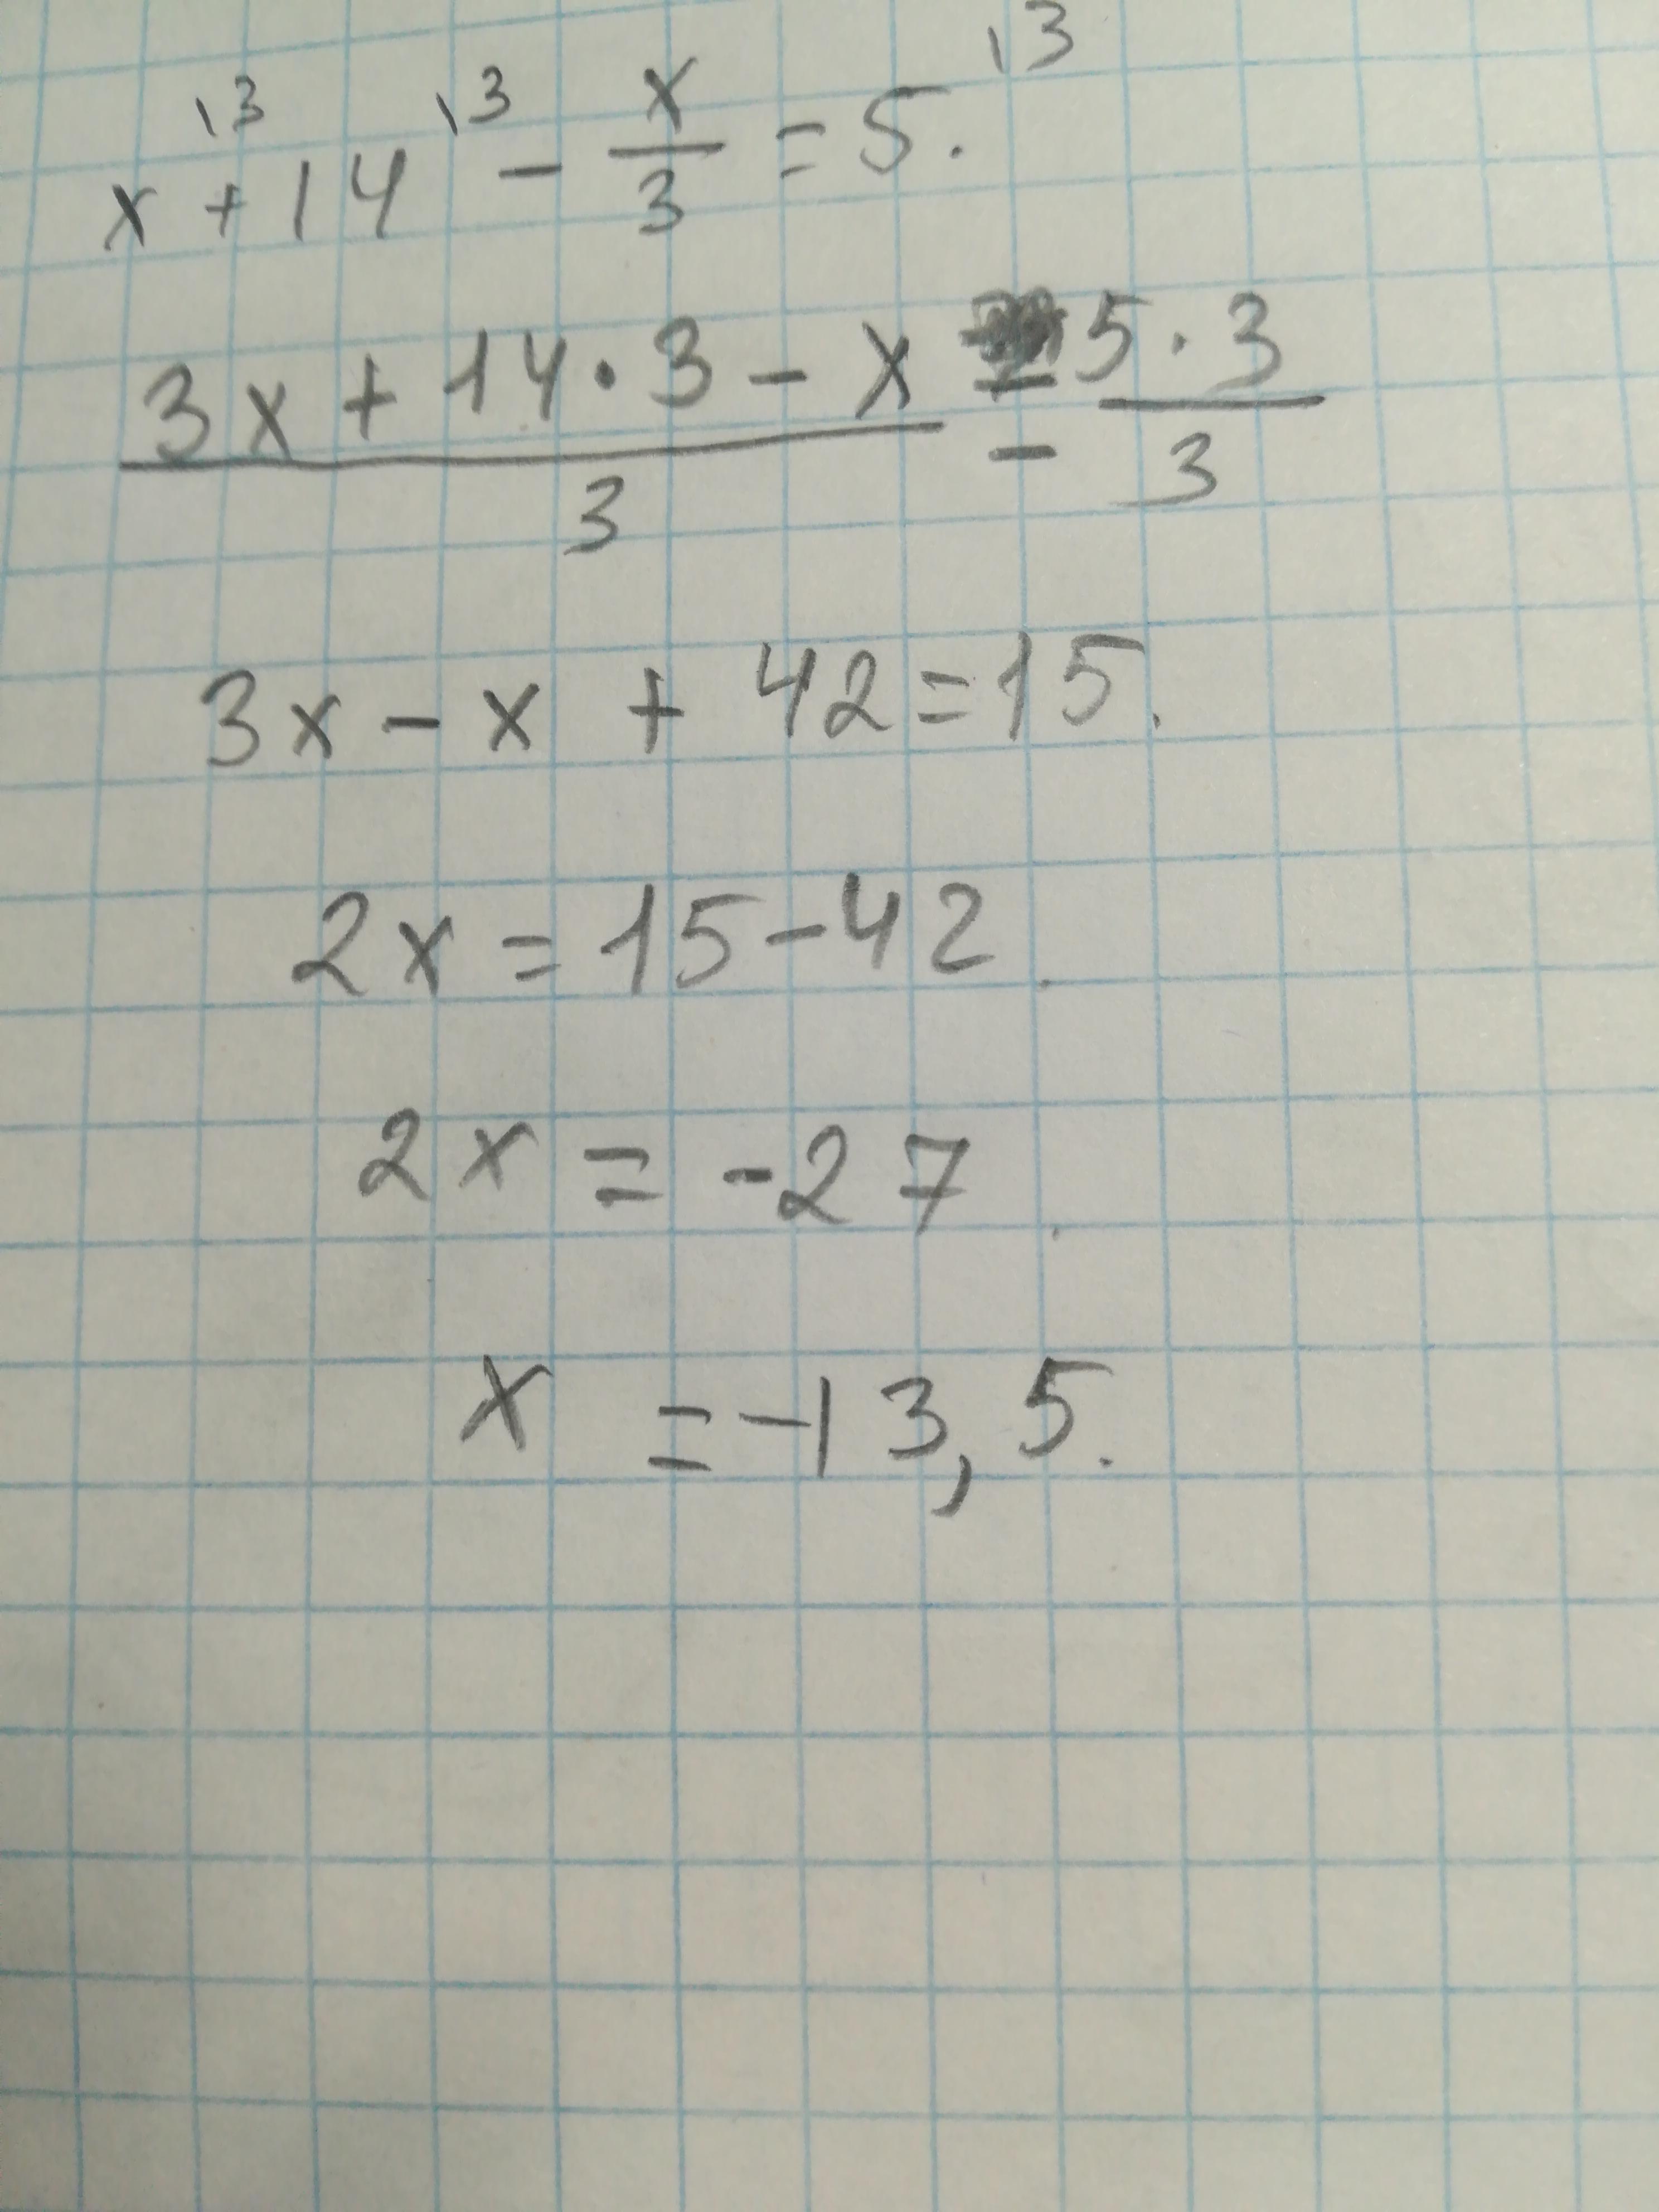 \3 \3 \3
x + 14 - x/3 = 5.
(3x + 14 · 3 - x)/3 = (5 · 3)/3
3x - x + 42 = 15.
2x = 15 - 42.
2x = -27.
x = -13,5.